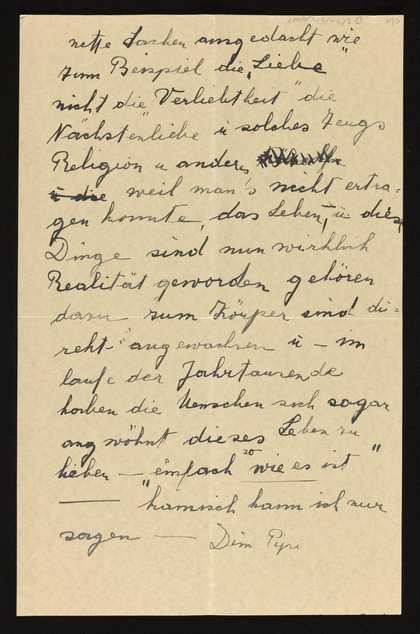 nette Sachen ausgedacht wie
zum Beispiel die „Liebe
nicht die Verliebtheit" die
Nächstenliebe u solches Zeugs
Religion u anders
u die weil man's nicht ertra-
gen konnte, das Leben, - u diese
Dinge sind nun wirklich
Realität geworden gehören
dazu zum Körper sind di-
rekt "angewachsen u - im
laufe der Jahrtausende
haben die Menschen sich sogar
angwöhnt dieses Leben zu
lieben — "einfach so wie es ist"
— "komisch kann ich nur
sagen — Dein Pips